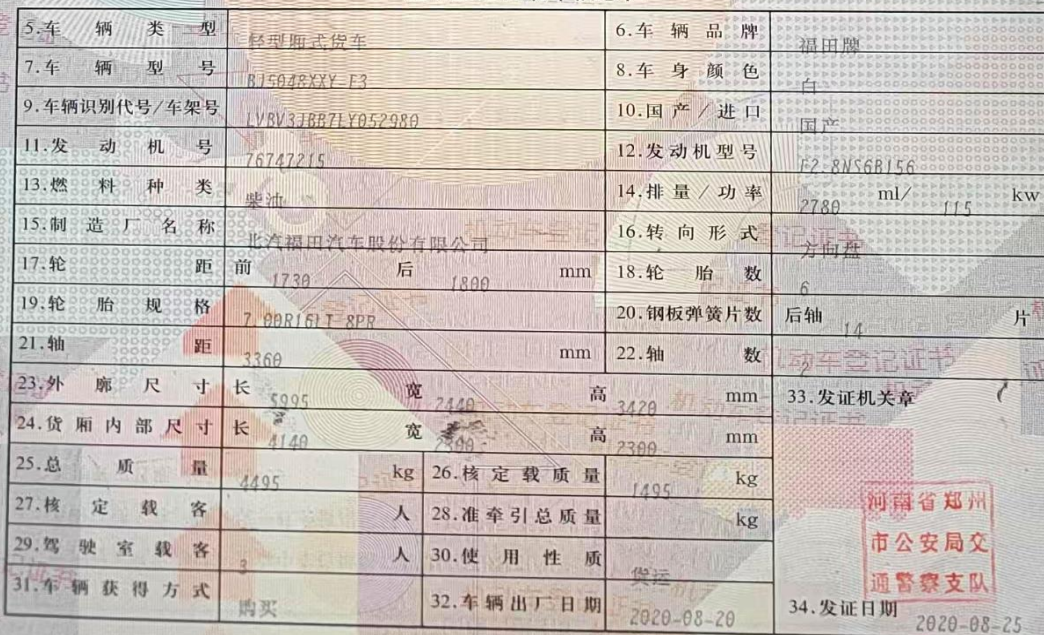 5.车辆类型 轻型厢式货车 6.车辆品牌 福田牌
7.车辆型号 BJ5048XXY-F3 8.车身颜色 白
9.车辆识别代号/车架号 LVBV3JBB7LY052980 10.国产/进口 国产
11.发动机号 76747215 12.发动机型号 F2.8NS6B156
13.燃料种类 柴油 14.排量/功率 2780 ml/ 115 kw
15.制造厂名称 北汽福田汽车股份有限公司 16.转向形式 方向盘
17.轮距 前 1730 后 1800 mm 18.轮胎数 6
19.轮胎规格 7.00R16LT 8PR 20.钢板弹簧片数 后轴 14 片
21.轴距 3360 mm 22.轴数 2
23.外廓尺寸 长 5995 宽 2440 高 3420 mm 33.发证机关章
24.货厢内部尺寸 长 4140 宽 2300 高 2300 mm
25.总质量 4495 kg 26.核定载质量 1495 kg
27.核定载客 人 28.准牵引总质量 kg
29.驾驶室载客 3 人 30.使用性质 货运
31.车辆获得方式 购买 32.车辆出厂日期 2020-08-20 34.发证日期 2020-08-25
河南省郑州
市公安局交
通警察支队